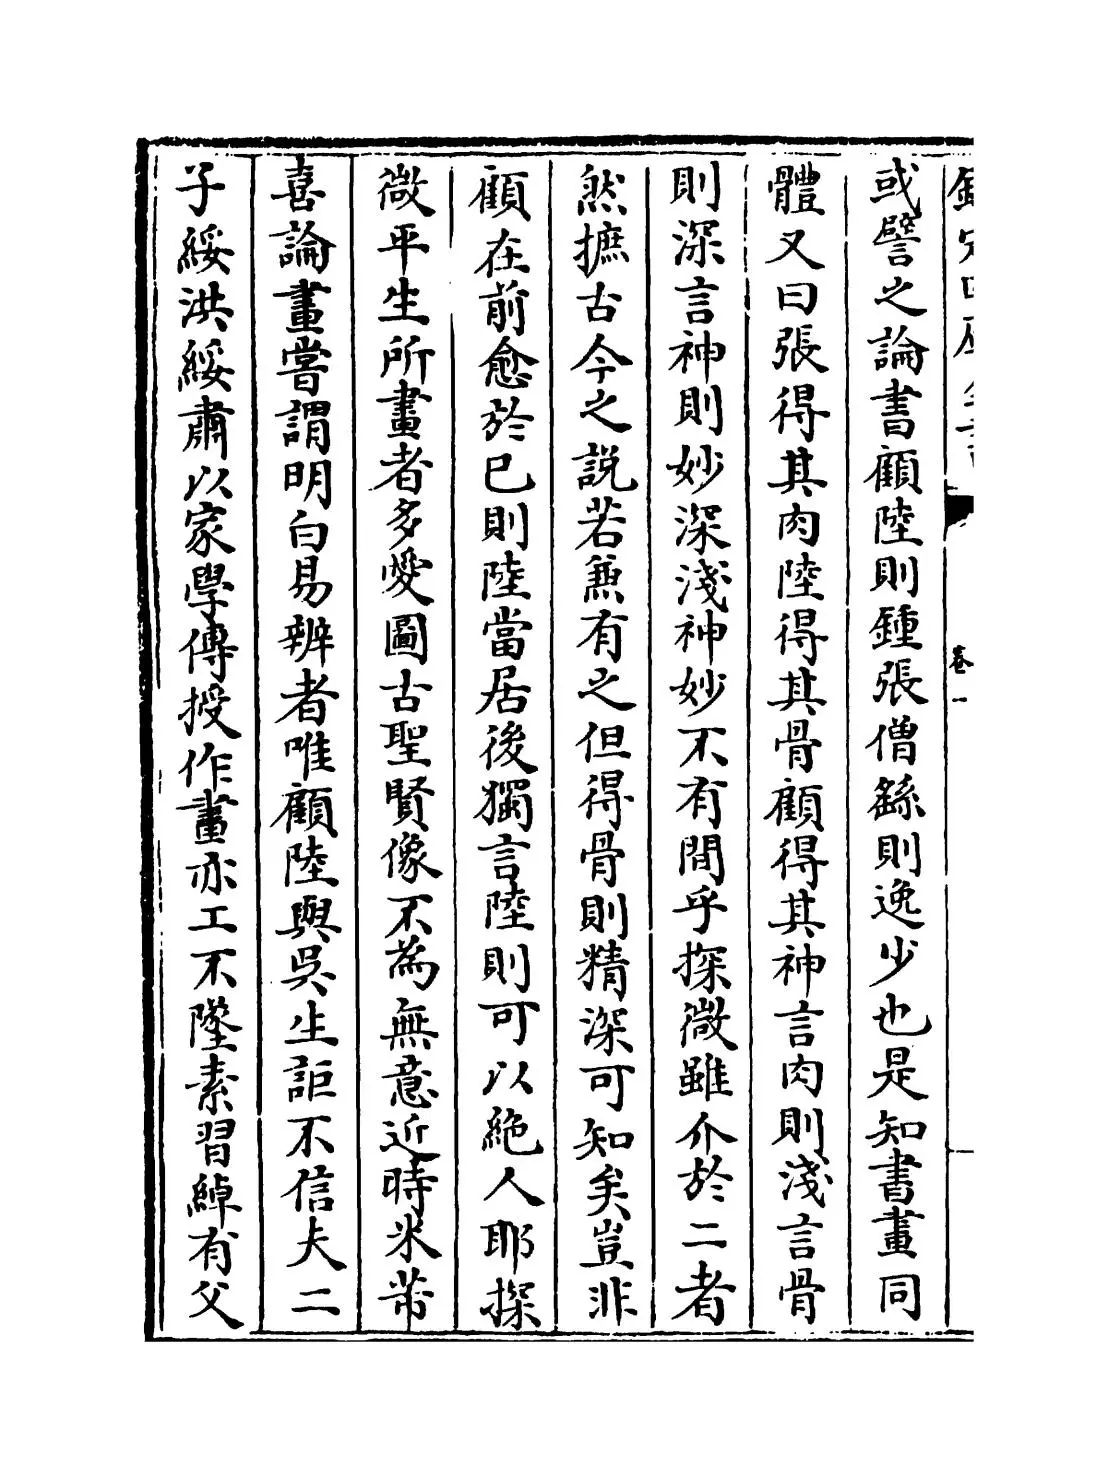 欽定四庫全書
卷一
或譬之論書顧陸則鍾張僧繇則逸少也是知書畫同
體又曰張得其肉陸得其骨顧得其神言肉則淺言骨
則深言神則妙深淺神妙不有間乎探微雖介於二者
然摭古今之説若兼有之但得骨則精深可知矣豈非
顧在前愈於已則陸當居後獨言陸則可以絶人耶探
微平生所畫者多愛圖古聖賢像不為無意近時米芾
喜論畫嘗謂明白易辨者唯顧陸與吳生詎不信夫二
子綏洪綏肅以家學傳授作畫亦工不墜素習綽有父